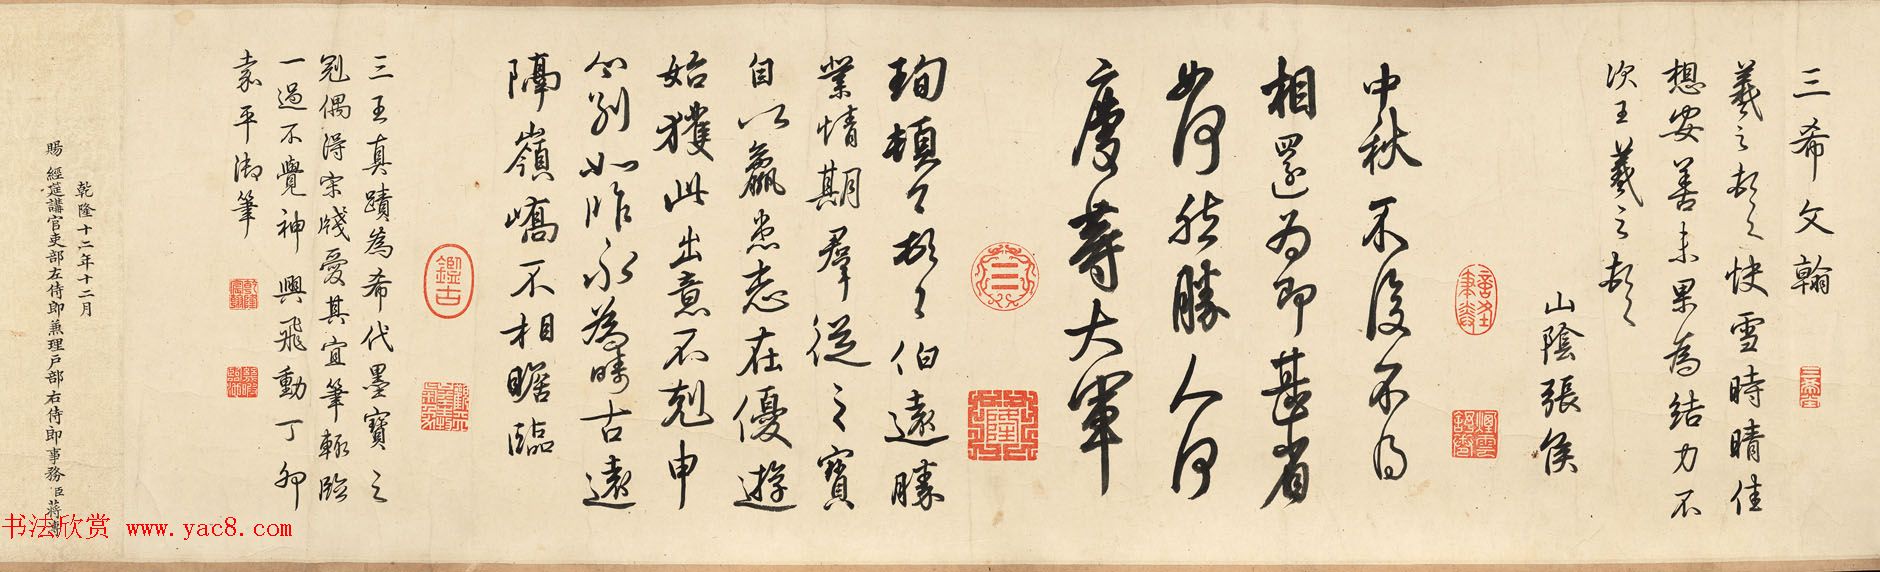 三希文翰
羲之頓首快雪時晴佳
想安善未果為結力不
次王羲之頓首
山陰張侯
中秋不復不得
相還為即甚省
如何然勝人何
慶等大軍
珣頓首頓首伯遠勝
業情期群從之寶
自以羸患志在優遊
始獲此出意不剋申
分別如昨永為疇古遠
隔嶺嶠不相瞻臨
三王真蹟為希代墨寶之
冠偶得宋牋愛其宜筆輒臨
一過不覺神興飛動丁卯
嘉平御筆
乾隆十二年十二月
賜經筵講官吏部左侍郎兼理戶部右侍郎事務臣蔣溥
鑑古
乾隆
三希堂
书法欣赏 www.yac8.com